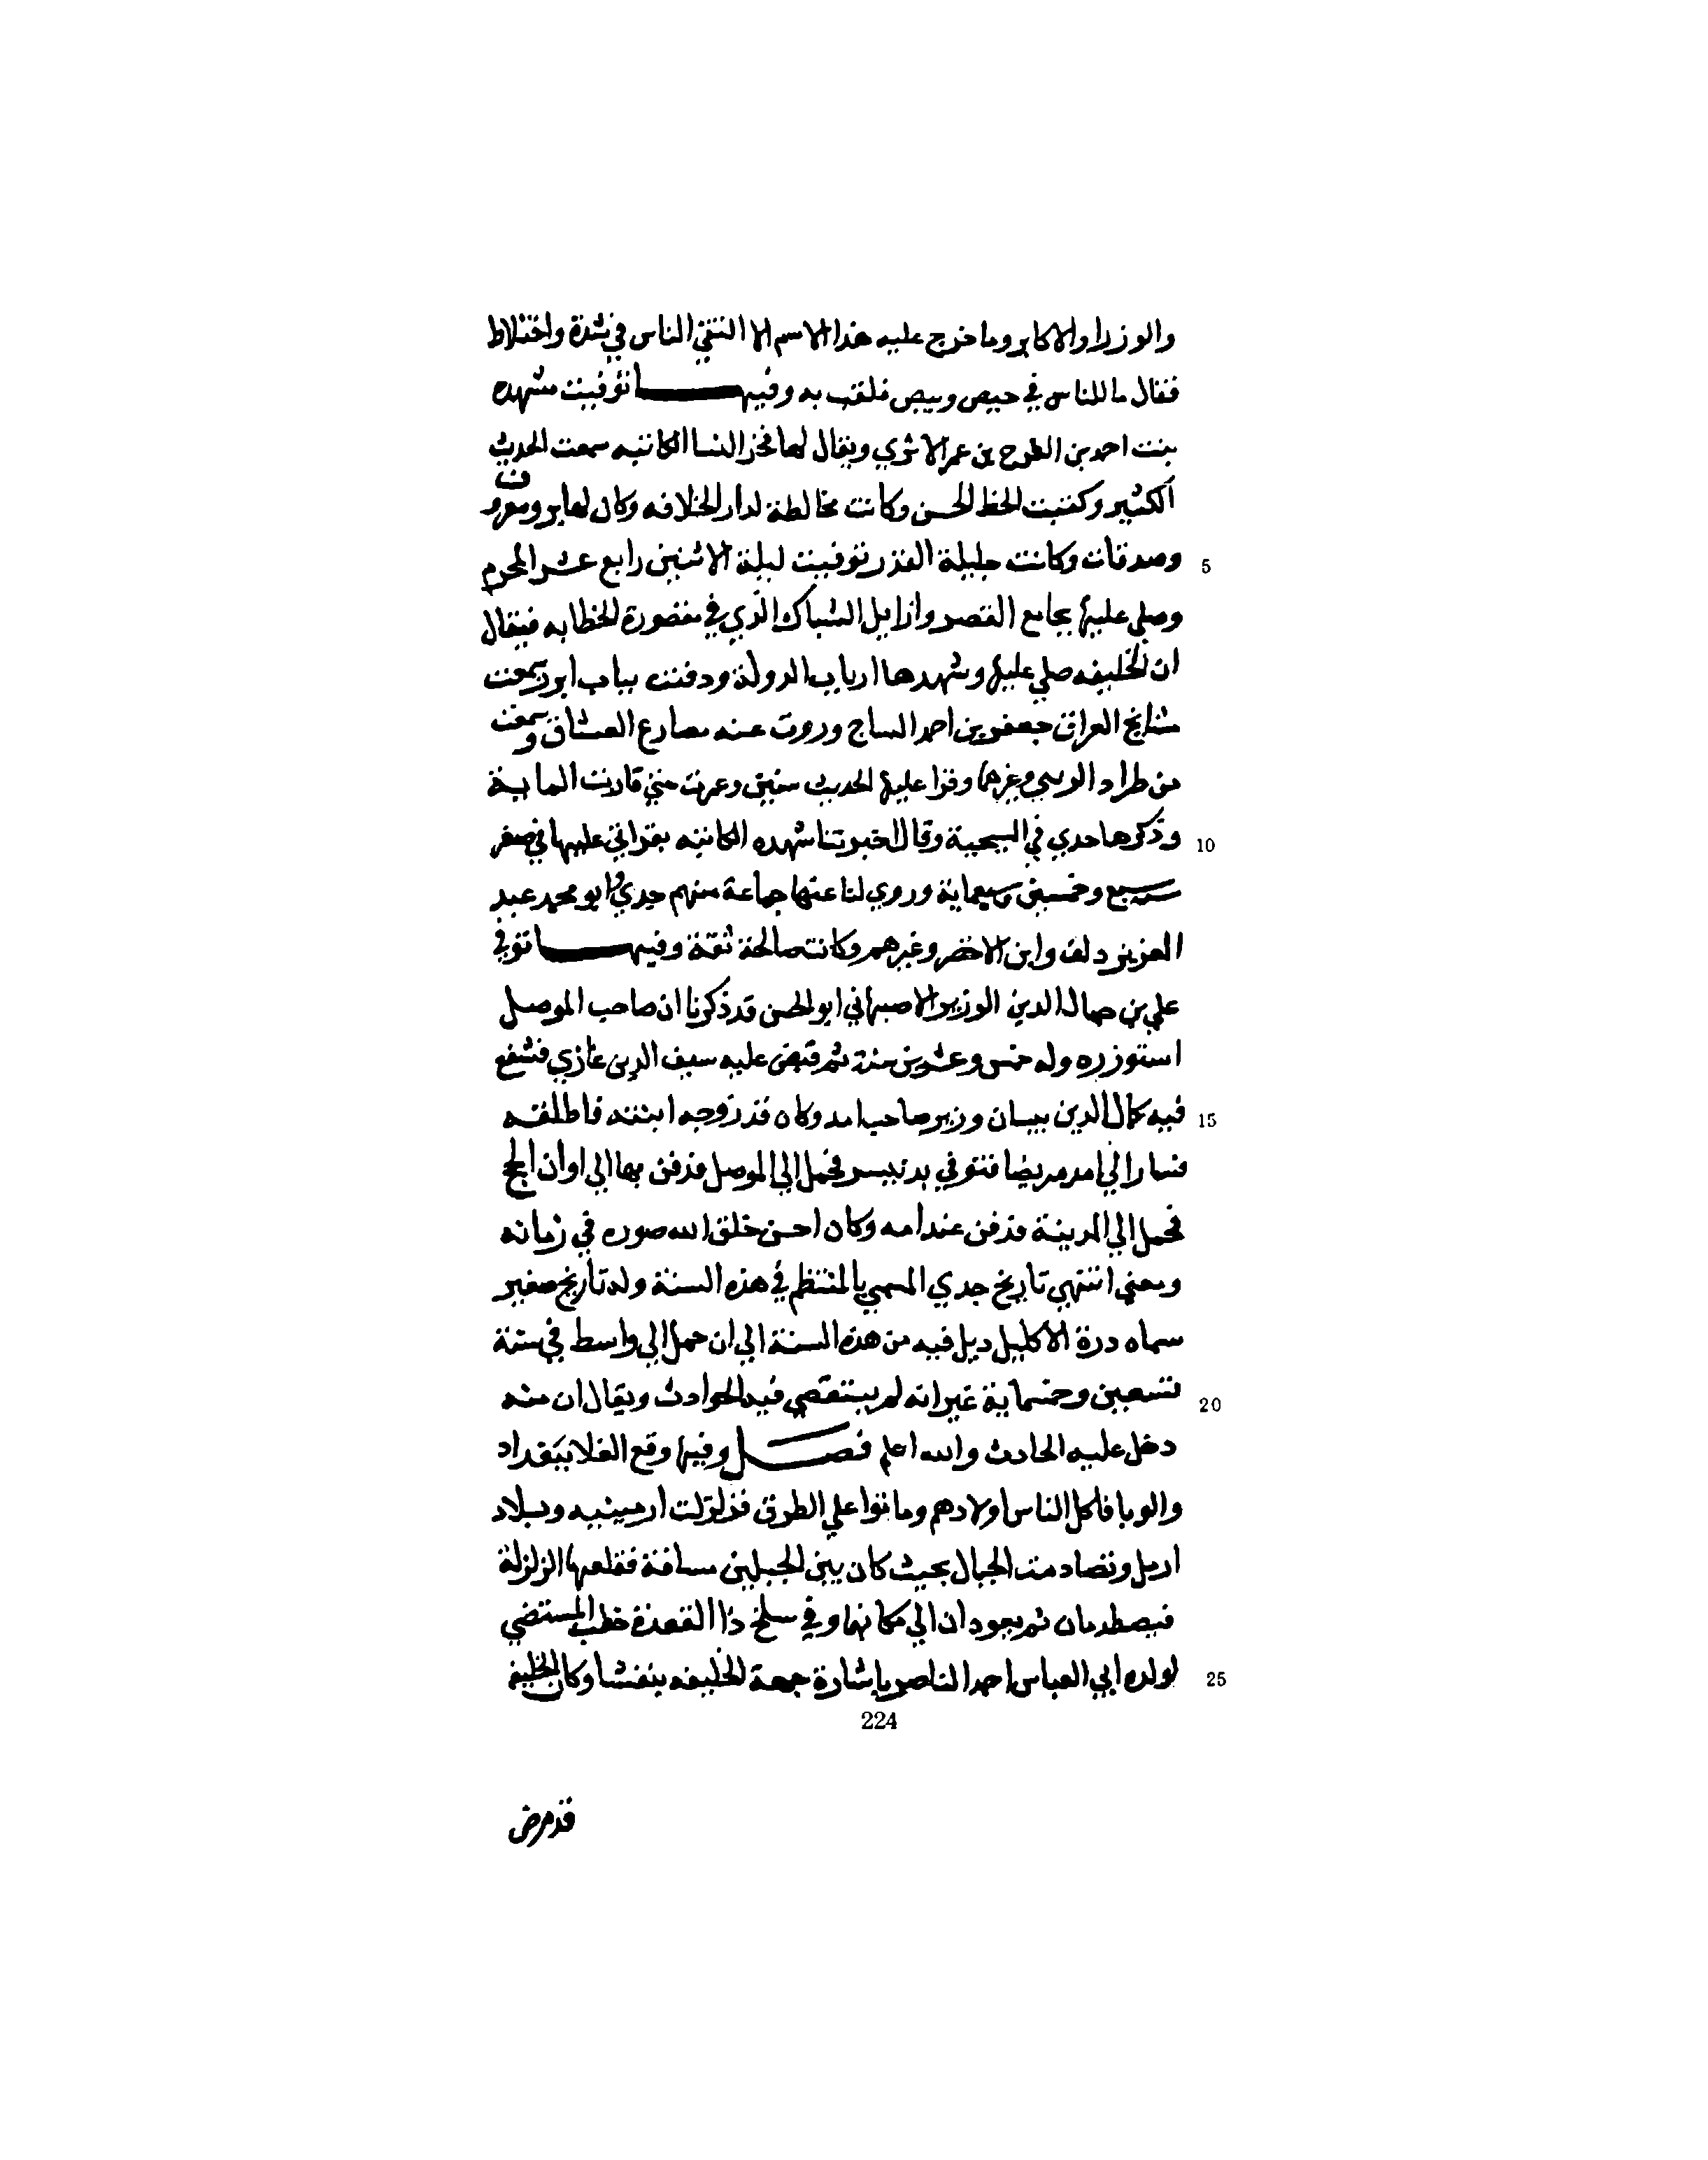 والوزراء والاكابر وما خرج عليه هذا الاسم الا التقي الناس في شدة واختلاط
فقال ما للناس في حيص وبيص فلقب به وفيها توفيت شهده
بنت احمد بن الفرج بن عمر الابري ويقال لها فخر النسا الكاتبه سمعت الحديث
الكثير وكتبت الخط الحسن وكانت مخالطة لدار الخلافه وكان لها بر ومعروف
5 وصدقات وكانت جليلة القدر توفيت ليلة الاثنين رابع عشر المحرم
وصلي عليها بجامع القصر وازيل الشباك الذي في مقصورة الخطابه فيقال
ان الخليفه صلي عليها وشهدها ارباب الدولة ودفنت بباب ابرز سمعت
مشايخ العراق جعفر بن احمد السراج وروت عنه مصارع العشاق وسمعت
من طراد الزينبي وغيرهما وقرا عليها الحديث سنين وعمرت حتي قاربت الماية
10 وذكرها جدي في المشيخة وقال اخبرتنا شهده الكاتبه بقراتي عليها في صفر
سنة سبع وخمسين وسبعماية وروي لنا عنها جماعة منهم جدي وابو محمد عبد
العزيز دلف وابن الاخضر وغيرهم وكانت صالحة ثقة وفيها توفي
علي بن جمال الدين الوزير الاصبهاني ابو الحسن قد ذكرنا ان صاحب الموصل
استوزره وله خمس وعشرين سنة ثم قبض عليه سيف الدين غازي فشفع
15 فيه كمال الدين بيسان وزير صاحب امد وكان قد زوجه ابنته فاطلقه
فسار الي امد مريضا فتوفي بدنيسر فحمل الي الموصل فدفن بها الي اوان الحج
فحمل الي المدينة فدفن عند امه وكان احسن خلق الله صوره في زمانه
ومعني انتهي تاريخ جدي المسمي بالمنتظم في هذه السنة وله تاريخ صغير
سماه درة الاكليل ديل فيه من هذه السنة الي ان حمل الي واسط في سنة
20 تسعين وخمسماية غير انه لم يستقصي فيه الحوادث ويقال ان منه
دخل عليه الحادث والله اعلم فصل وفيها وقع الغلا ببغداد
والوبا فاكل الناس اولادهم وماتوا علي الطرق فزلزلت ارمينيه وبلاد
اربل وتصادمت الجبال بحيث كان بين الجبلين مسافة فقلعها الزلزلة
فيصطدمان ثم يعودان الي مكانهما وفي سلخ ذا القعدة خطب المستضي
25 لولده ابي العباس احمد الناصر باشارة جهة الخليفه بنفشا وكان الخليفه
224
قد مرض